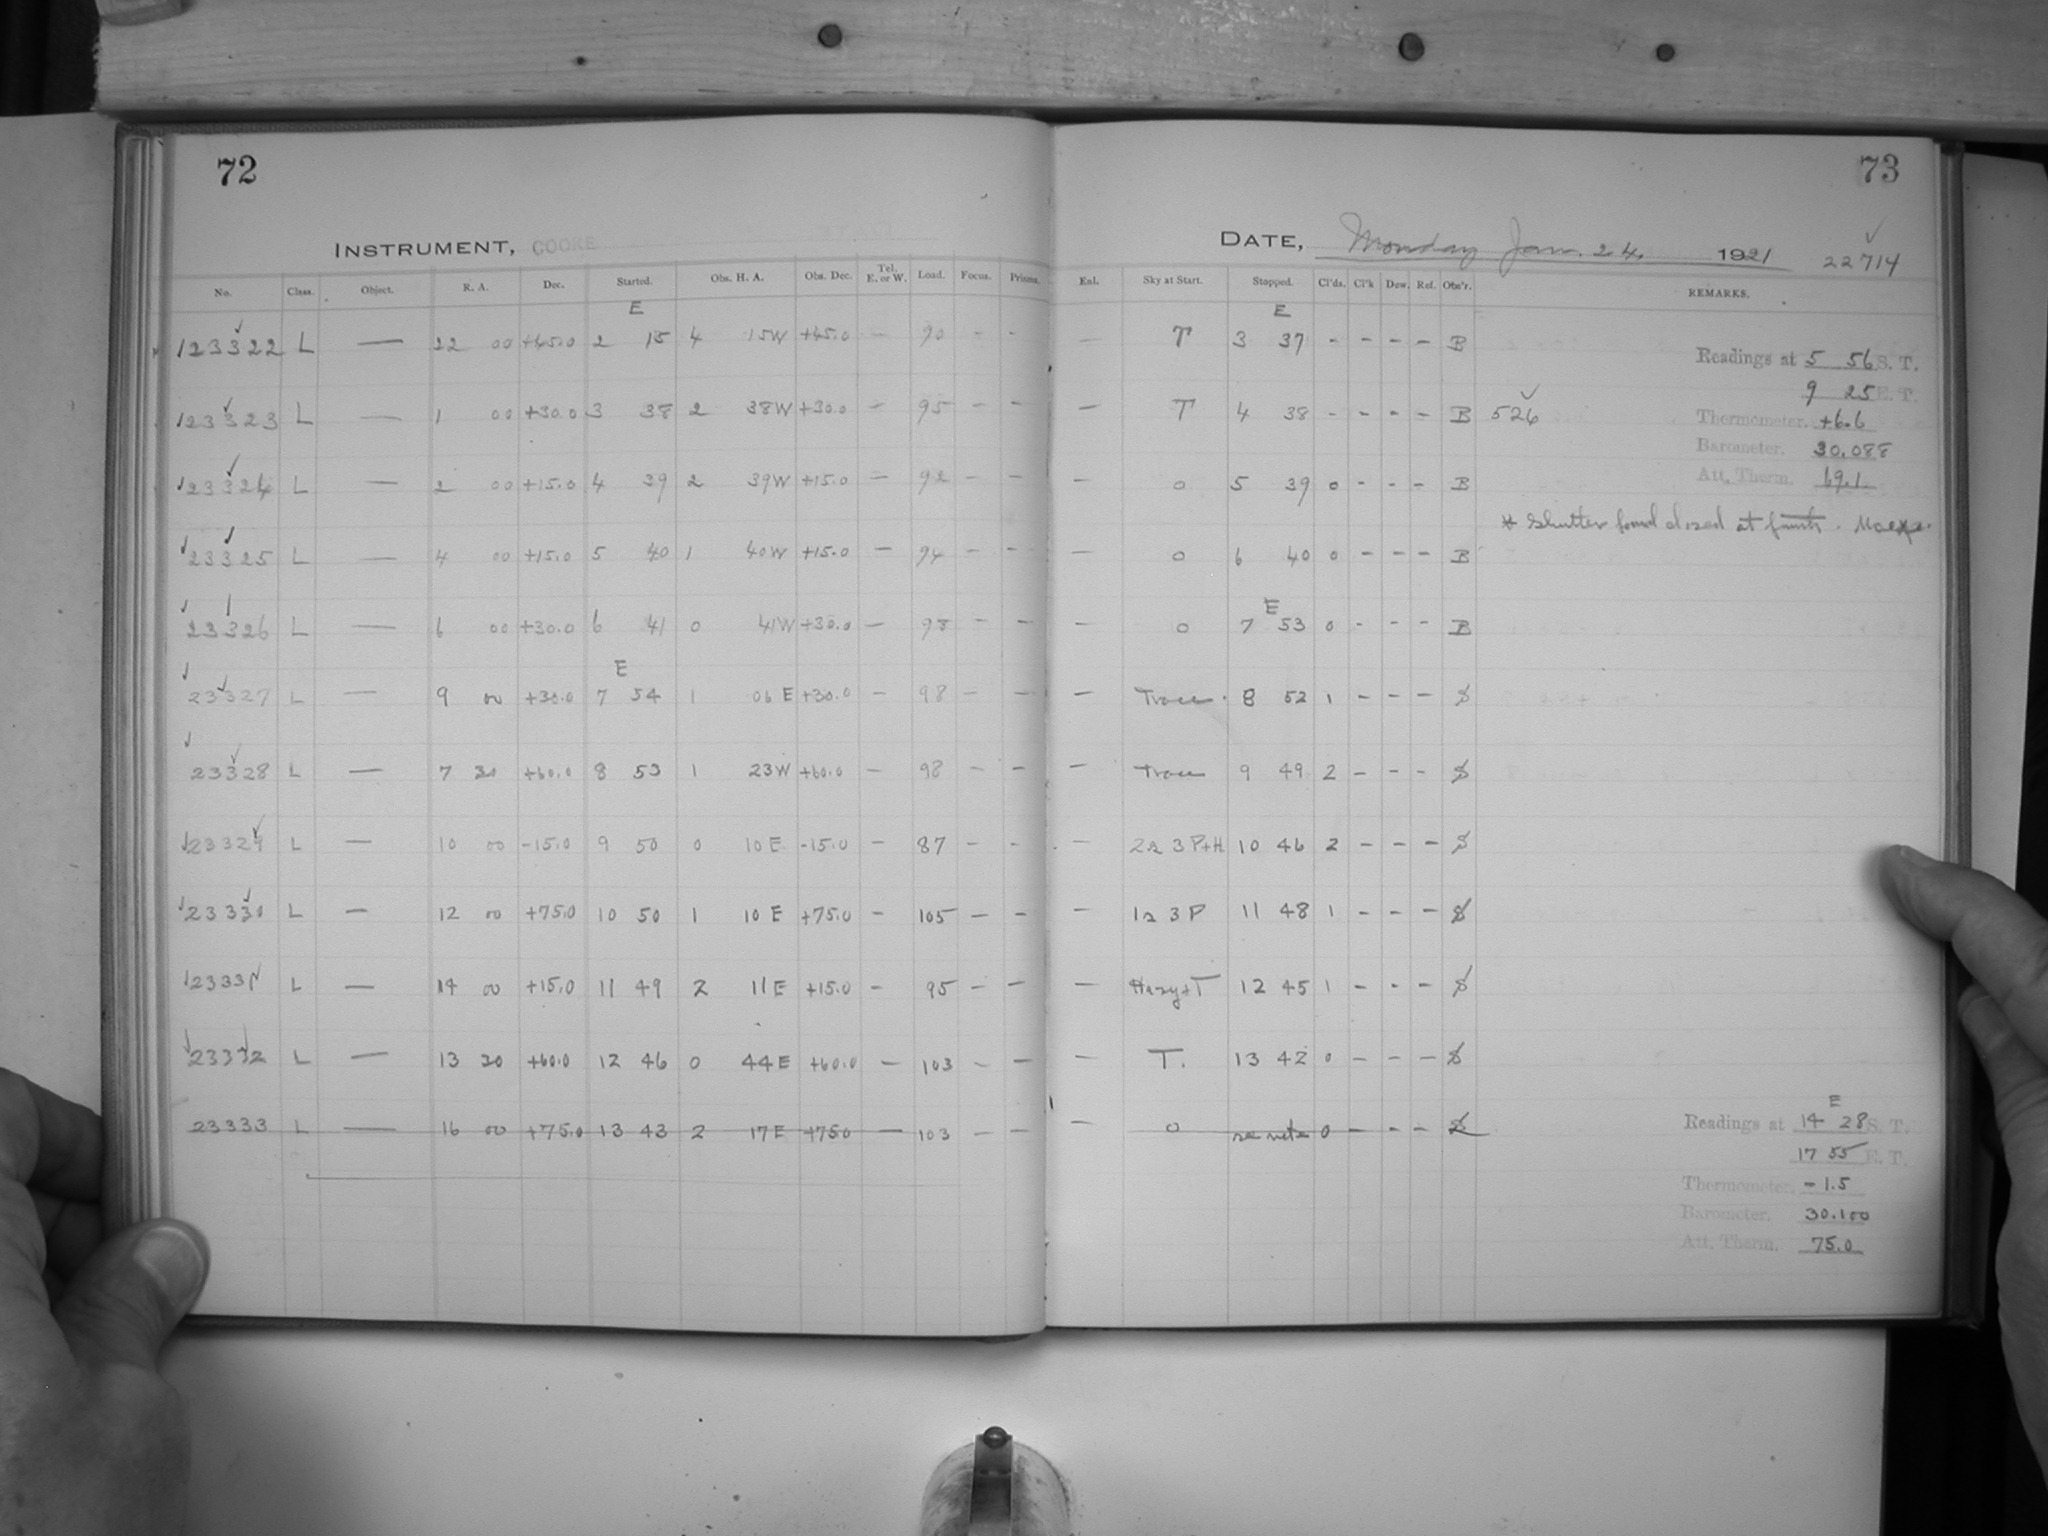 72
INSTRUMENT, COOKE
No. Class. Object. R. A. Dec. Started. Obs. H. A. Obs. Dec. Tel. E. or W. Load. Focus. Prisms.
E
123322 L — 22 00 +45.0 2 15 4 15W +45.0 — 90 - -
123323 L — 1 00 +30.0 3 38 2 38W +30.0 — 95 - -
123324 L — 2 00 +15.0 4 39 2 39W +15.0 — 92 - -
123325 L — 4 00 +15.0 5 40 1 40W +15.0 — 94 - -
123326 L — 6 00 +30.0 6 41 0 41W +30.0 — 98 - -
E
23327 L — 9 00 +30.0 7 54 1 06 E +30.0 - 98 - -
23328 L — 7 30 +60.0 8 53 1 23W +60.0 - 98 - -
123329 L — 10 00 -15.0 9 50 0 10 E -15.0 - 87 - -
123330 L — 12 00 +75.0 10 50 1 10 E +75.0 - 105 - -
123331 L — 14 00 +15.0 11 49 2 11 E +15.0 - 95 - -
23332 L — 13 30 +60.0 12 46 0 44 E +60.0 - 103 - -
23333 L — 16 00 +75.0 13 43 2 17 E +75.0 - 103 - -
73
DATE, Monday Jan. 24, 1921 22714
Enl. Sky at Start. Stopped. Cl'ds. Cl'k Dew. Ref. Obs'r. REMARKS.
E
— T 3 37 - - - - B
Readings at 5 56 S. T.
9 25 E. T.
— T 4 38 - - - - B 526
Thermometer. +6.6
Barometer. 30.088
Att. Therm. 69.1
— 0 5 39 0 - - - B
* Shutter found closed at
— 0 6 40 0 - - - B
E
— 0 7 53 0 - - - B
— Trace. 8 52 1 - - - S
— Trace 9 49 2 - - - S
— 2 a 3 P+H 10 46 2 - - - S
— 1 a 3 P 11 48 1 - - - S
— Hazy+T 12 45 1 - - - S
— T. 13 42 0 - - - S
— 0 0 - - - S
E
Readings at 14 28 S. T.
17 55 E. T.
Thermometer. -1.5
Barometer. 30.100
Att. Therm. 75.0